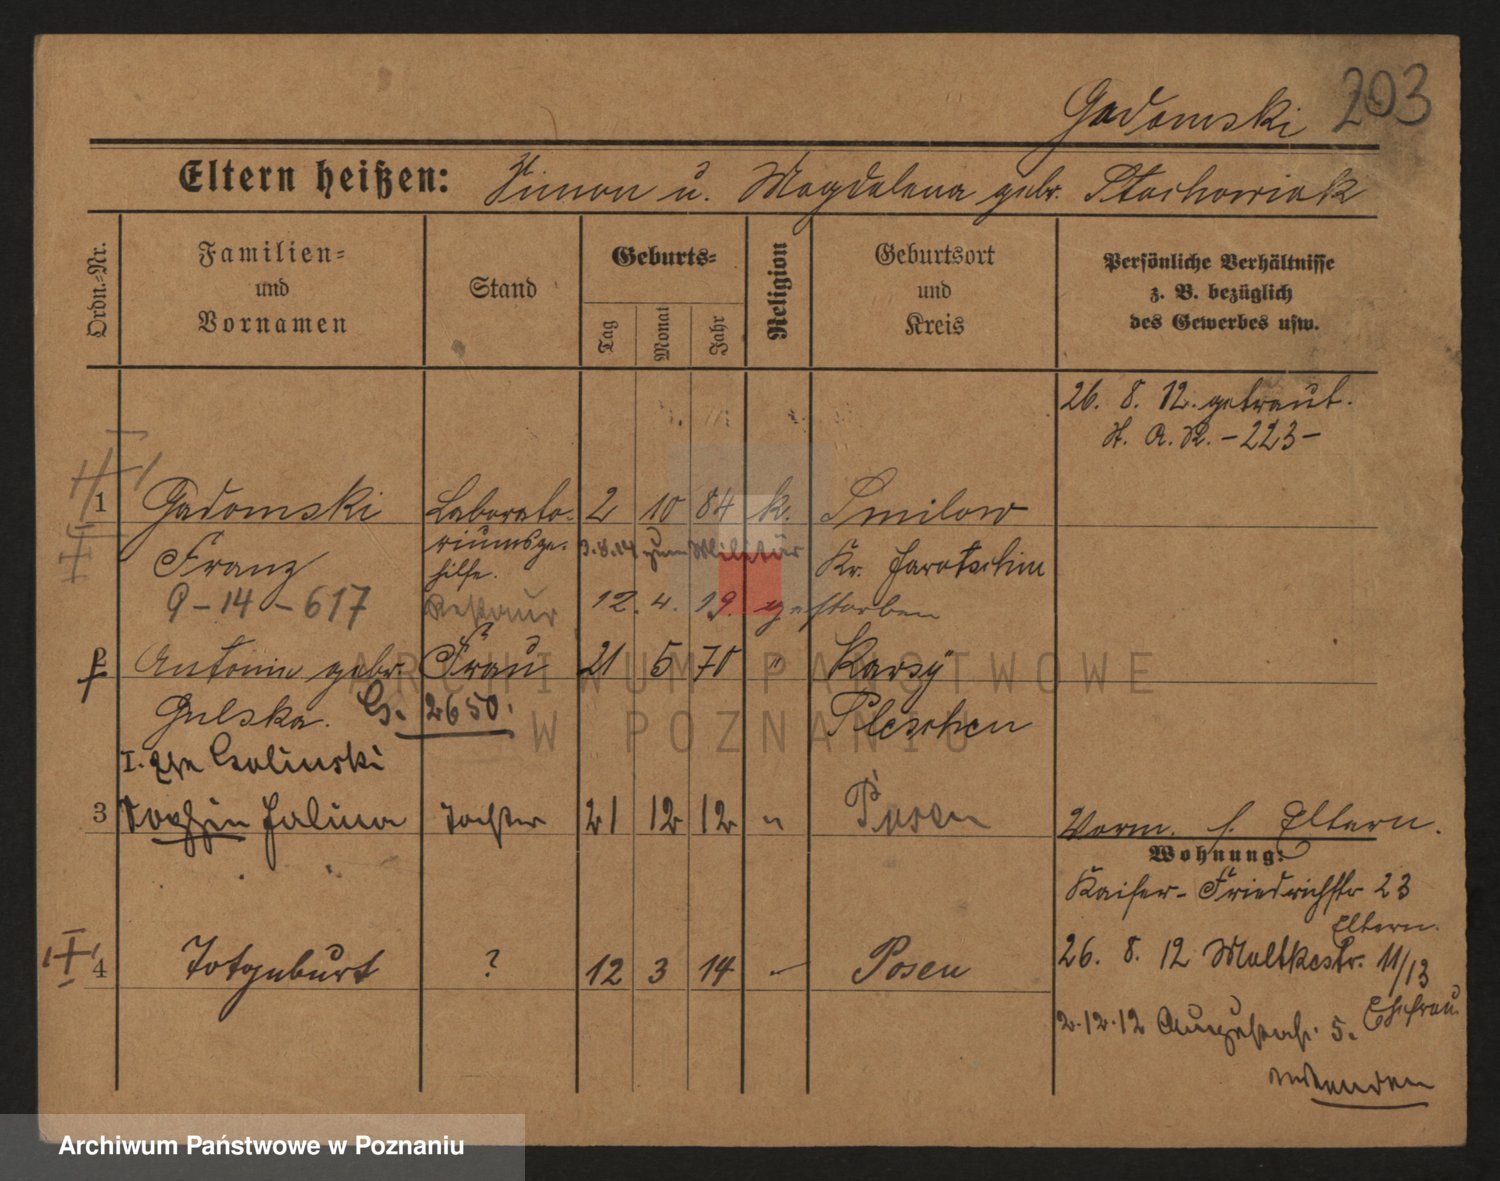 Gadomski 203
Eltern heißen: Simon u. Magdalena gebr. Stachowiak
Ordn.-Nr.
Familien= und Vornamen
Stand
Geburts=
Tag
Monat
Jahr
Religion
Geburtsort und Kreis
Persönliche Verhältnisse
z. B. bezüglich
des Gewerbes usw.
26. 8. 12. getraut.
St. A. R. - 223 -
1 Gadomski Laborato- 2 10 84 k. Smilow
riumsge-
hilfe.
Franz 3.8.14 zum Militär Kr. Jarotschin
9-14-617 12. 4. 19. gestorben
2 Antonie gebr. Frau 21 5 70 " Karsy
Gulska. G. 2650. Pleschen
I. Golinski
3 Halina Tochter 21 12 12 " Posen
Vorm. s. Eltern.
Wohnung:
Kaiser-Friedrichstr 23
Eltern.
4 Totgeburt ? 12 3 14 - Posen
26. 8. 12 Moltkestr. 11/13
Ehefrau.
2.12.12 Augustastr. 5.
wenden
ARCHIWUM PAŃSTWOWE
W POZNANIU
Archiwum Państwowe w Poznaniu